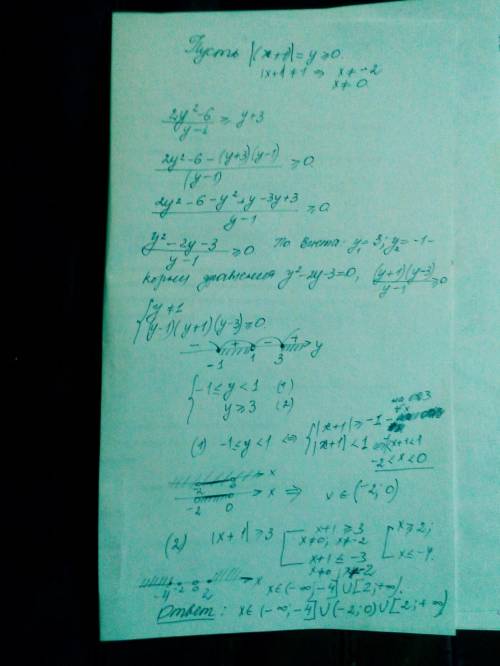 Пусть |x+1| = y ≥ 0.
|x+1| ≠ 1 ⇒ x ≠ -2
x ≠ 0.
(2y²-6)/(y-1) ≥ y+3
(2y²-6-(y+3)(y-1))/(y-1) ≥ 0
(2y²-6-y²+y-3y+3)/(y-1) ≥ 0
(y²-2y-3)/(y-1) ≥ 0 По Виета: y₁ = 3; y₂ = -1 -
корни уравнения y²-2y-3=0, (y+1)(y-3)/(y-1) ≥ 0
{ y ≠ 1
(y-1)(y+1)(y-3) ≥ 0.
- + - + y
-1 1 3
{ -1 ≤ y < 1 (1)
y ≥ 3 (2)
(1) -1 ≤ y < 1 ⇔ { |x+1| ≥ -1 -
|x+1| < 1 ⇔ -1 < x+1 < 1
-2 < x < 0
-2 0 x
-2 0 x ⇒ x ∈ (-2; 0)
(2) |x+1| ≥ 3 [ x+1 ≥ 3 [ x ≥ 2;
x ≠ 0; x ≠ -2
x+1 ≤ -3 x ≤ -4.
x ≠ 0, x ≠ -2
-4 -2 0 2 x x ∈ (-∞; -4] ∪ [2; +∞).
Ответ: x ∈ (-∞; -4] ∪ (-2; 0) ∪ [2; +∞)